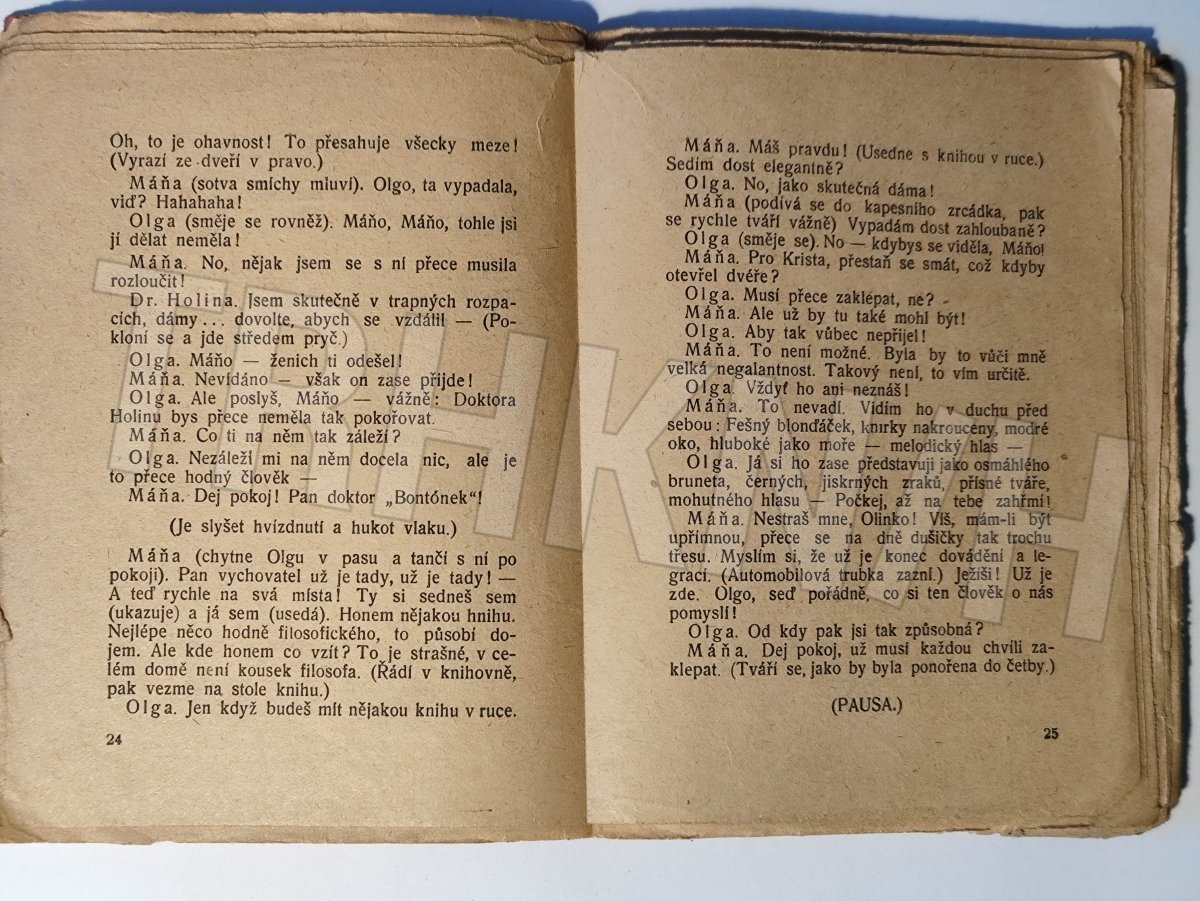 Oh, to je ohavnost! To přesahuje všecky meze!
(Vyrazí ze dveří v pravo.)
Máňa (sotva smíchy mluví). Olgo, ta vypadala,
viď? Hahahaha!
Olga (směje se rovněž). Máňo, Máňo, tohle jsi
jí dělat neměla!
Máňa. No, nějak jsem se s ní přece musila
rozloučit!
Dr. Holina. Jsem skutečně v trapných rozpa-
cích, dámy... dovolte, abych se vzdálil — (Po-
kloní se a jde středem pryč.)
Olga. Máňo — ženich ti odešel!
Máňa. Nevídáno — však on zase přijde!
Olga. Ale poslyš, Máňo — vážně: Doktora
Holinu bys přece neměla tak pokořovat.
Máňa. Co ti na něm tak záleží?
Olga. Nezáleží mi na něm docela nic, ale je
to přece hodný člověk —
Máňa. Dej pokoj! Pan doktor „Bontónek"!
(Je slyšet hvízdnutí a hukot vlaku.)
Máňa (chytne Olgu v pasu a tančí s ní po
pokoji). Pan vychovatel už je tady, už je tady! —
A teď rychle na svá místa! Ty si sedneš sem
(ukazuje) a já sem (usedá). Honem nějakou hnihu.
Nejlépe něco hodně filosofického, to působí do-
jem. Ale kde honem co vzít? To je strašné, v ce-
lém domě není kousek filosofa. (Řádí v knihovně,
pak vezme na stole knihu.)
Olga. Jen když budeš mít nějakou knihu v ruce.
24
Máňa. Máš pravdu! (Usedne s knihou v ruce.)
Sedím dost elegantně?
Olga. No, jako skutečná dáma!
Máňa (podívá se do kapesního zrcádka, pak
se rychle tváří vážně) Vypadám dost zahloubaně?
Olga (směje se). No — kdybys se viděla, Máňo!
Máňa. Pro Krista, přestaň se smát, což kdyby
otevřel dvéře?
Olga. Musí přece zaklepat, ne?
Máňa. Ale už by tu také mohl být!
Olga. Aby tak vůbec nepřijel!
Máňa. To není možné. Byla by to vůči mně
velká negalantnost. Takový není, to vím určitě.
Olga. Vždyť ho ani neznáš!
Máňa. To nevadí. Vidím ho v duchu před
sebou: Fešný blonďáček, knírky nakrouceny, modré
oko, hluboké jako moře — melodický hlas —
Olga. Já si ho zase představuji jako osmáhlého
bruneta, černých, jiskrných zraků, přísné tváře,
mohutného hlasu — Počkej, až na tebe zahřmí!
Máňa. Nestraš mne, Olinko! Víš, mám-li být
upřímnou, přece se na dně dušičky tak trochu
třesu. Myslím si, že už je konec dovádění a le-
grací. (Automobilová trubka zazní.) Ježíši! Už je
zde. Olgo, seď pořádně, co si ten člověk o nás
pomyslí!
Olga. Od kdy pak jsi tak způsobná?
Máňa. Dej pokoj, už musí každou chvíli za-
klepat. (Tváří se, jako by byla ponořena do četby.)
(PAUSA.)
25
TRHKNIH